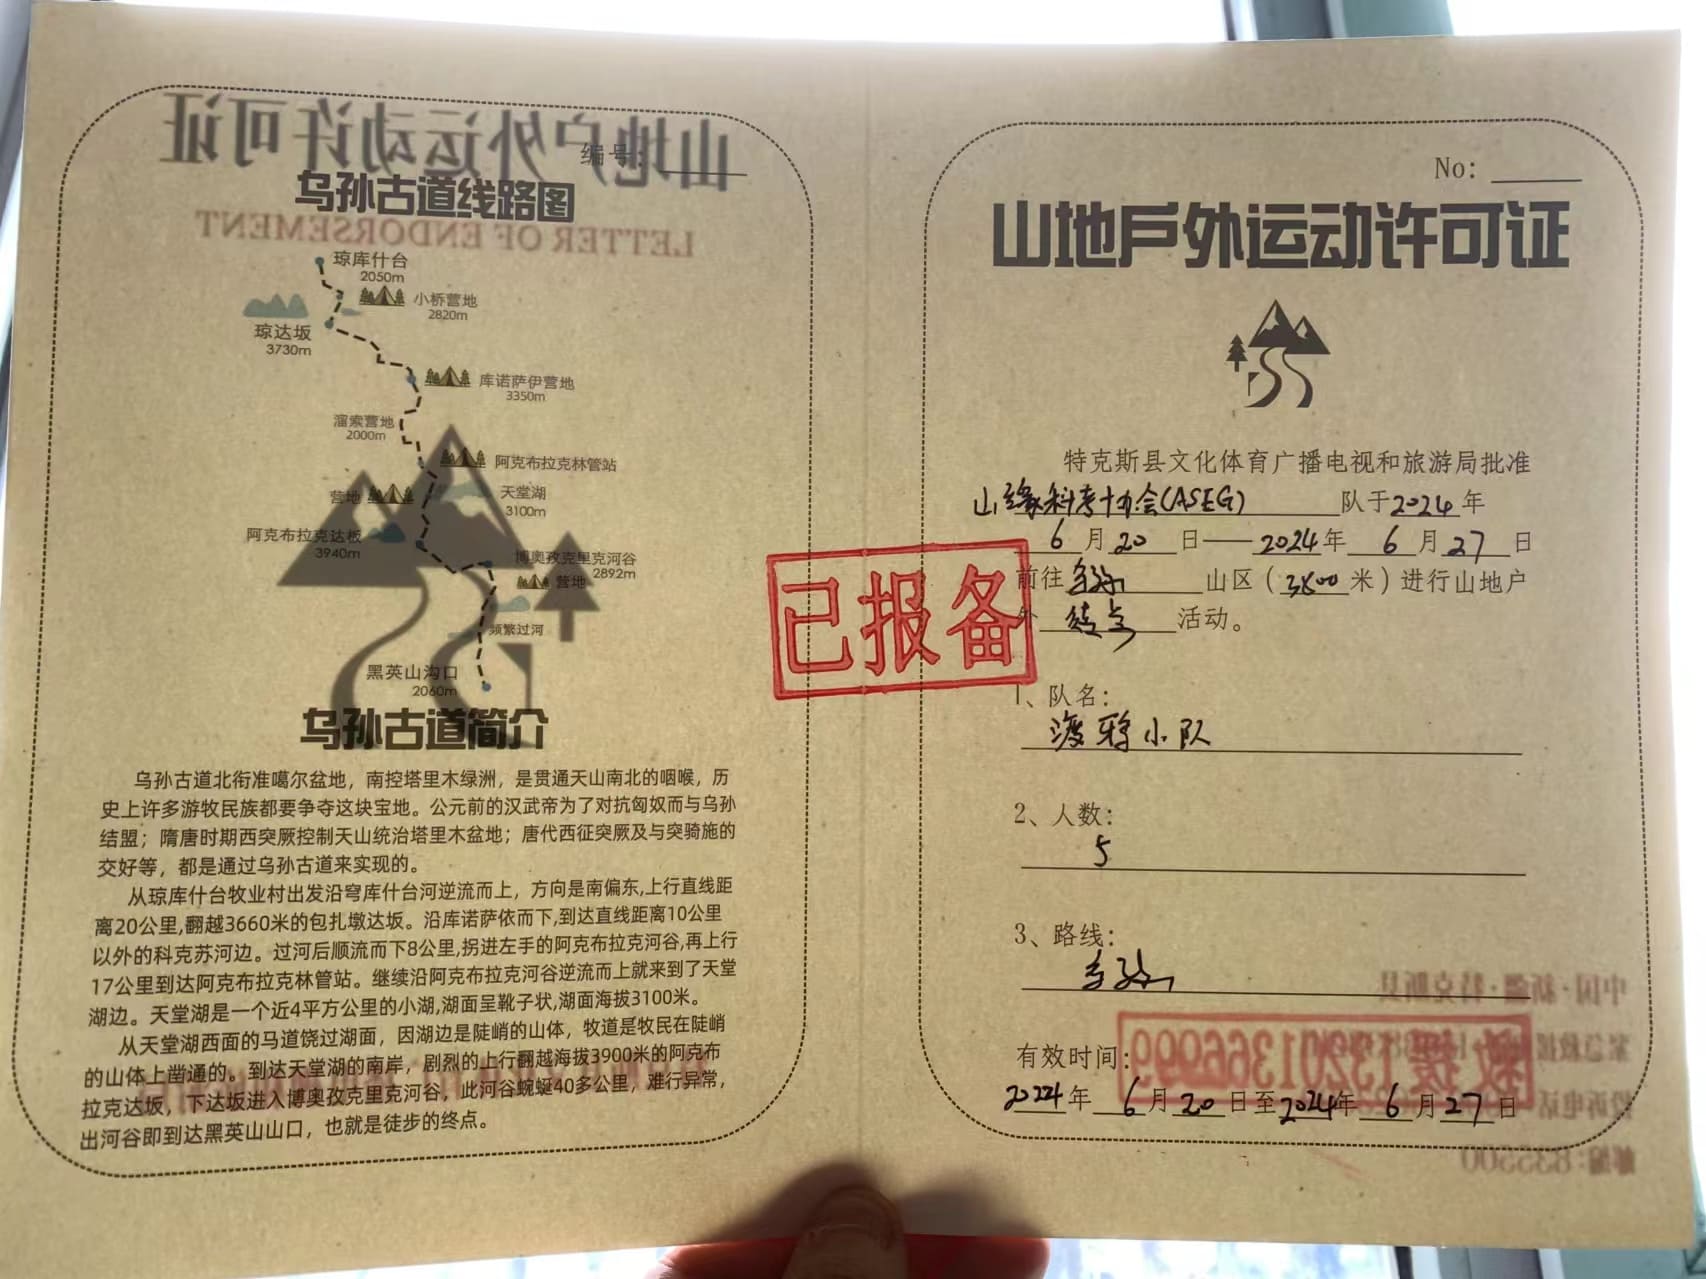 编号:
乌孙古道线路图
琼库什台
2050m
小桥营地
2820m
琼达坂
3730m
库诺萨伊营地
3350m
溜索营地
2000m
阿克布拉克林管站
营地
天堂湖
3100m
阿克布拉克达板
3940m
博奥孜克里克河谷
2892m
营地
频繁过河
黑英山沟口
2060m
乌孙古道简介
乌孙古道北衔准噶尔盆地，南控塔里木绿洲，是贯通天山南北的咽喉，历
史上许多游牧民族都要争夺这块宝地。公元前的汉武帝为了对抗匈奴而与乌孙
结盟；隋唐时期西突厥控制天山统治塔里木盆地；唐代西征突厥及与突骑施的
交好等，都是通过乌孙古道来实现的。
从琼库什台牧业村出发沿穹库什台河逆流而上，方向是南偏东,上行直线距
离20公里,翻越3660米的包扎墩达坂。沿库诺萨依而下,到达直线距离10公里
以外的科克苏河边。过河后顺流而下8公里,拐进左手的阿克布拉克河谷,再上行
17公里到达阿克布拉克林管站。继续沿阿克布拉克河谷逆流而上就来到了天堂
湖边。天堂湖是一个近4平方公里的小湖,湖面呈靴子状,湖面海拔3100米。
从天堂湖西面的马道饶过湖面，因湖边是陡峭的山体，牧道是牧民在陡峭
的山体上凿通的。到达天堂湖的南岸，剧烈的上行翻越海拔3900米的阿克布
拉克达坂，下达坂进入博奥孜克里克河谷，此河谷蜿蜒40多公里，难行异常，
出河谷即到达黑英山山口，也就是徒步的终点。
已报备
No:
山地户外运动许可证
特克斯县文化体育广播电视和旅游局批准
山缘科考协会(ASEG) 队于2024年
6月20日——2024年6月27日
前往乌孙山区（3800米）进行山地户
外 活动。
1、队名：
渡鸦小队
2、人数：
5
3、路线：
乌孙
有效时间：
2024年6月20日至2024年6月27日
山地户外运动许可证
LETTER OF ENDORSEMENT
中国·新疆·特克斯县
救援13201366099
邮编：835500